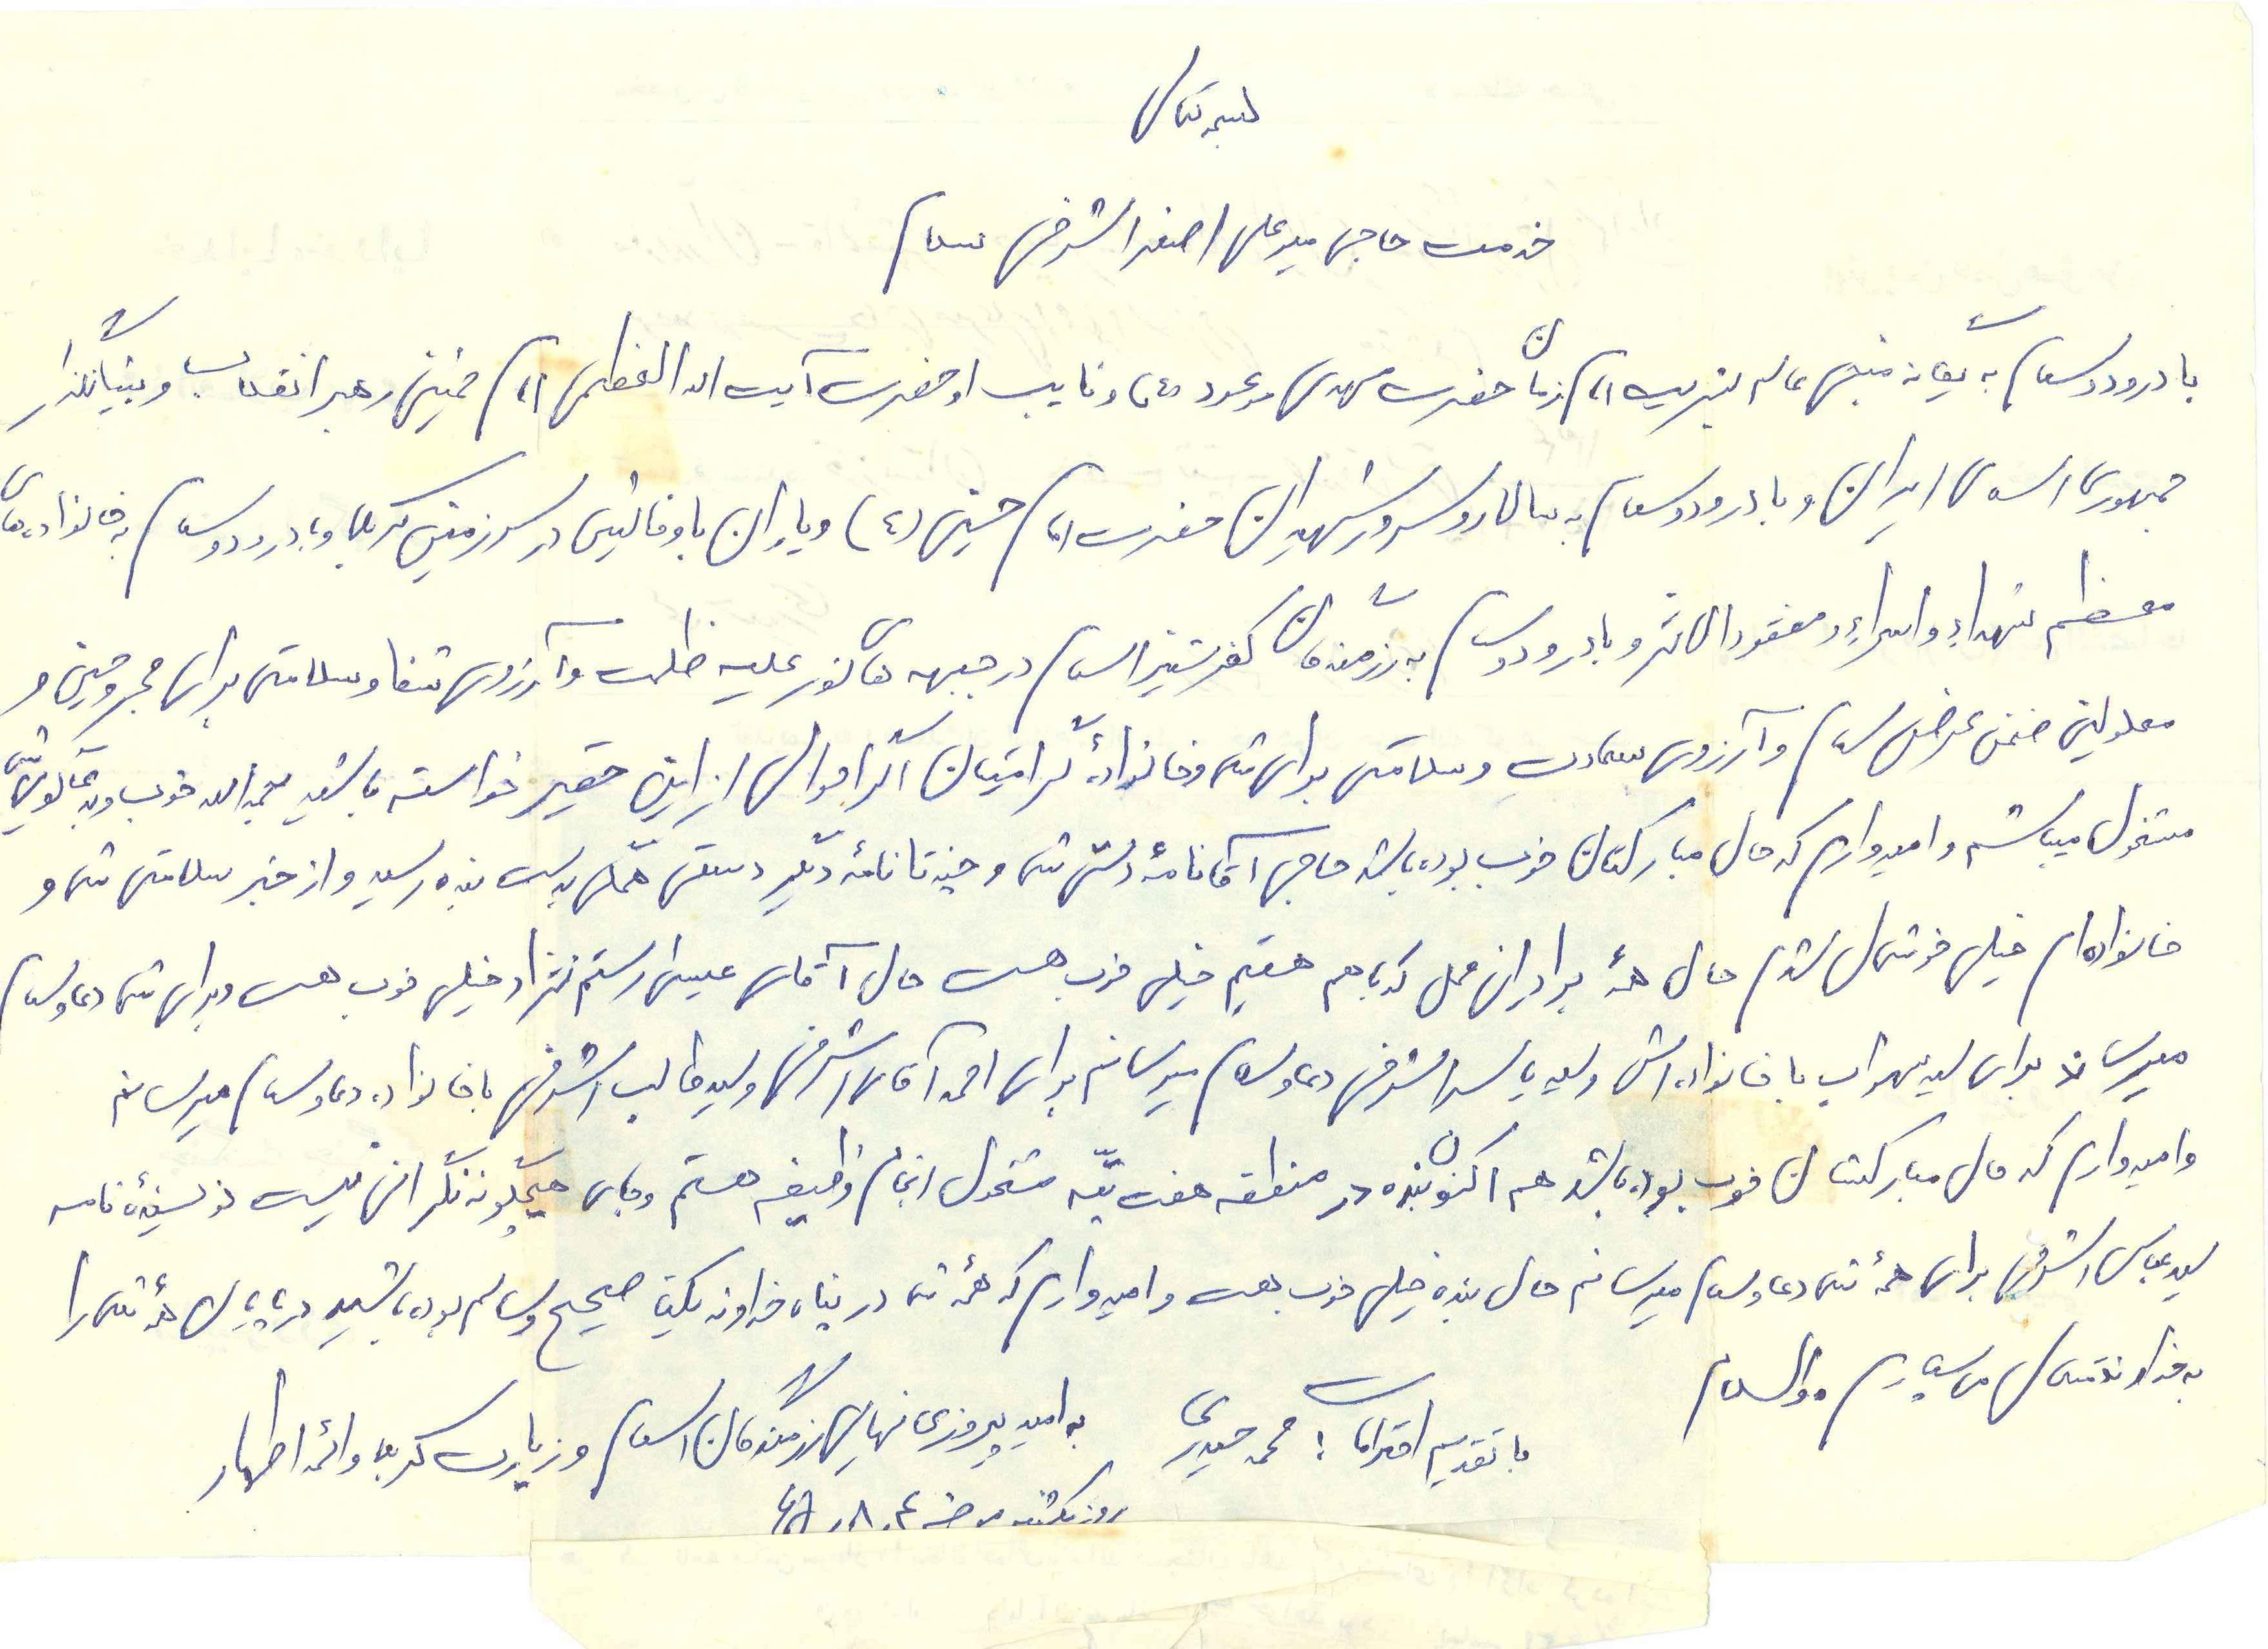 بسمه تعالی
خدمت حاجی میرعلی اصغر اشرفی سلام
با درود و سلام به یگانه منجی عالم بشریت امام زمان حضرت مهدی موعود (عج) و نایب او حضرت آیت الله العظمی امام خمینی رهبر انقلاب و بنیانگذار
جمهوری اسلامی ایران و با درود و سلام به سالار و سرور شهیدان حضرت امام حسین (ع) و یاران باوفایش در سرزمین کربلا و با درود و سلام به خانواده های
معظم شهداء و اسراء و مفقودالاثر و با درود و سلام به رزمندگان کفرستیز اسلام در جبهه های نور علیه ظلمت و آرزوی شفا و سلامتی برای مجروحین و
معلولین ضمن عرض سلام و آرزوی سعادت و سلامتی برای شما و خانوادهٔ گرامیتان اگر احوالی از این حقیر خواسته باشید بحمدالله خوب و به دعاگوئی شما
مشغول میباشم و امیدوارم که حال مبارکتان خوب بوده باشد حاجی آقا نامهٔ شما و چند تا نامهٔ دیگر دستی همگی بدست بنده رسید و از خبر سلامتی شما و
خانواده ام خیلی خوشحال شدم حال همهٔ برادران محل که با هم هستیم خیلی خوب هست حال آقای عیسی رستم نژاد خیلی خوب هست و برای شما دعا و سلام
میرساند برای سید سهراب با خانواده اش و سید یاسر اشرفی دعا و سلام میرسانم برای احمد آقای اشرفی و سید طالب اشرفی با خانواده دعا و سلام میرسانم
و امیدوارم که حال مبارکتان خوب بوده باشد هم اکنون بنده در منطقه هفت تپّه مشغول انجام وظیفه هستم و جای هیچگونه نگرانی نیست نویسندهٔ نامه
سید عباس اشرفی برای همهٔ شما دعا و سلام میرسانم حال بنده خیلی خوب هست و امیدوارم که همهٔ شما در پناه خداوند یکتا صحیح و سالم بوده باشید در پایان همهٔ شما را
به خداوند متعال می سپارم والسلام
با تقدیم احترامات : محمد حیدری به امید پیروزی نهایی رزمندگان اسلام و زیارت کربلا و ائمه اطهار
روز یکشنبه مورخه ۶۴٫۸